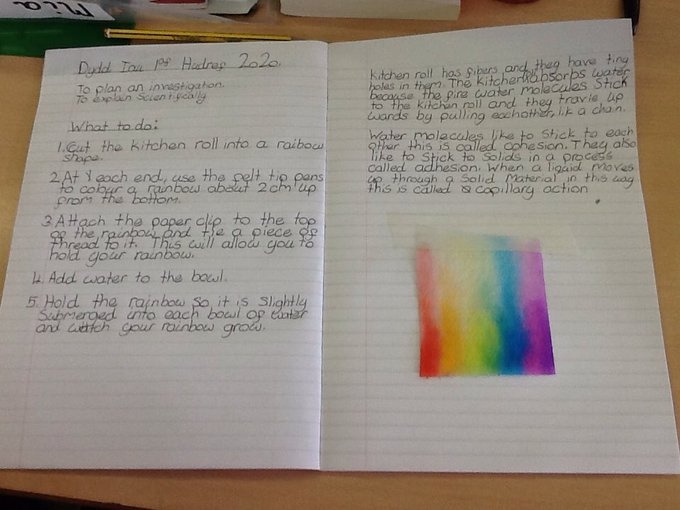 Mia
Dydd Iau 1st Hydref 2020.
To plan an investigation.
To explain Scientifically
What to do:
1. Cut the kitchen roll into a raibow
shape.
2. At each end, use the felt tip pens
to colour a rainbow about 2cm up
from the bottom.
3. Attach the paper clip to the top
of the rainbow and tie a piece of
thread to it. This will allow you to
hold your rainbow.
4. Add water to the bowl.
5. Hold the rainbow so it is slightly
submerged into each bowl of water
and watch your rainbow grow.
kitchen roll has fibers and they have tiny
holes in them. The kitchen roll absorbs water
because the fire water molecules stick
to the kitchen roll and they travle up
wards by pulling eachother, lik a chain.
Water molecules like to stick to each
other this is called cohesion. They also
like to stick to solids in a process
called adhesion. When a liquid moves
up through a solid material in this way
this is called capillary action